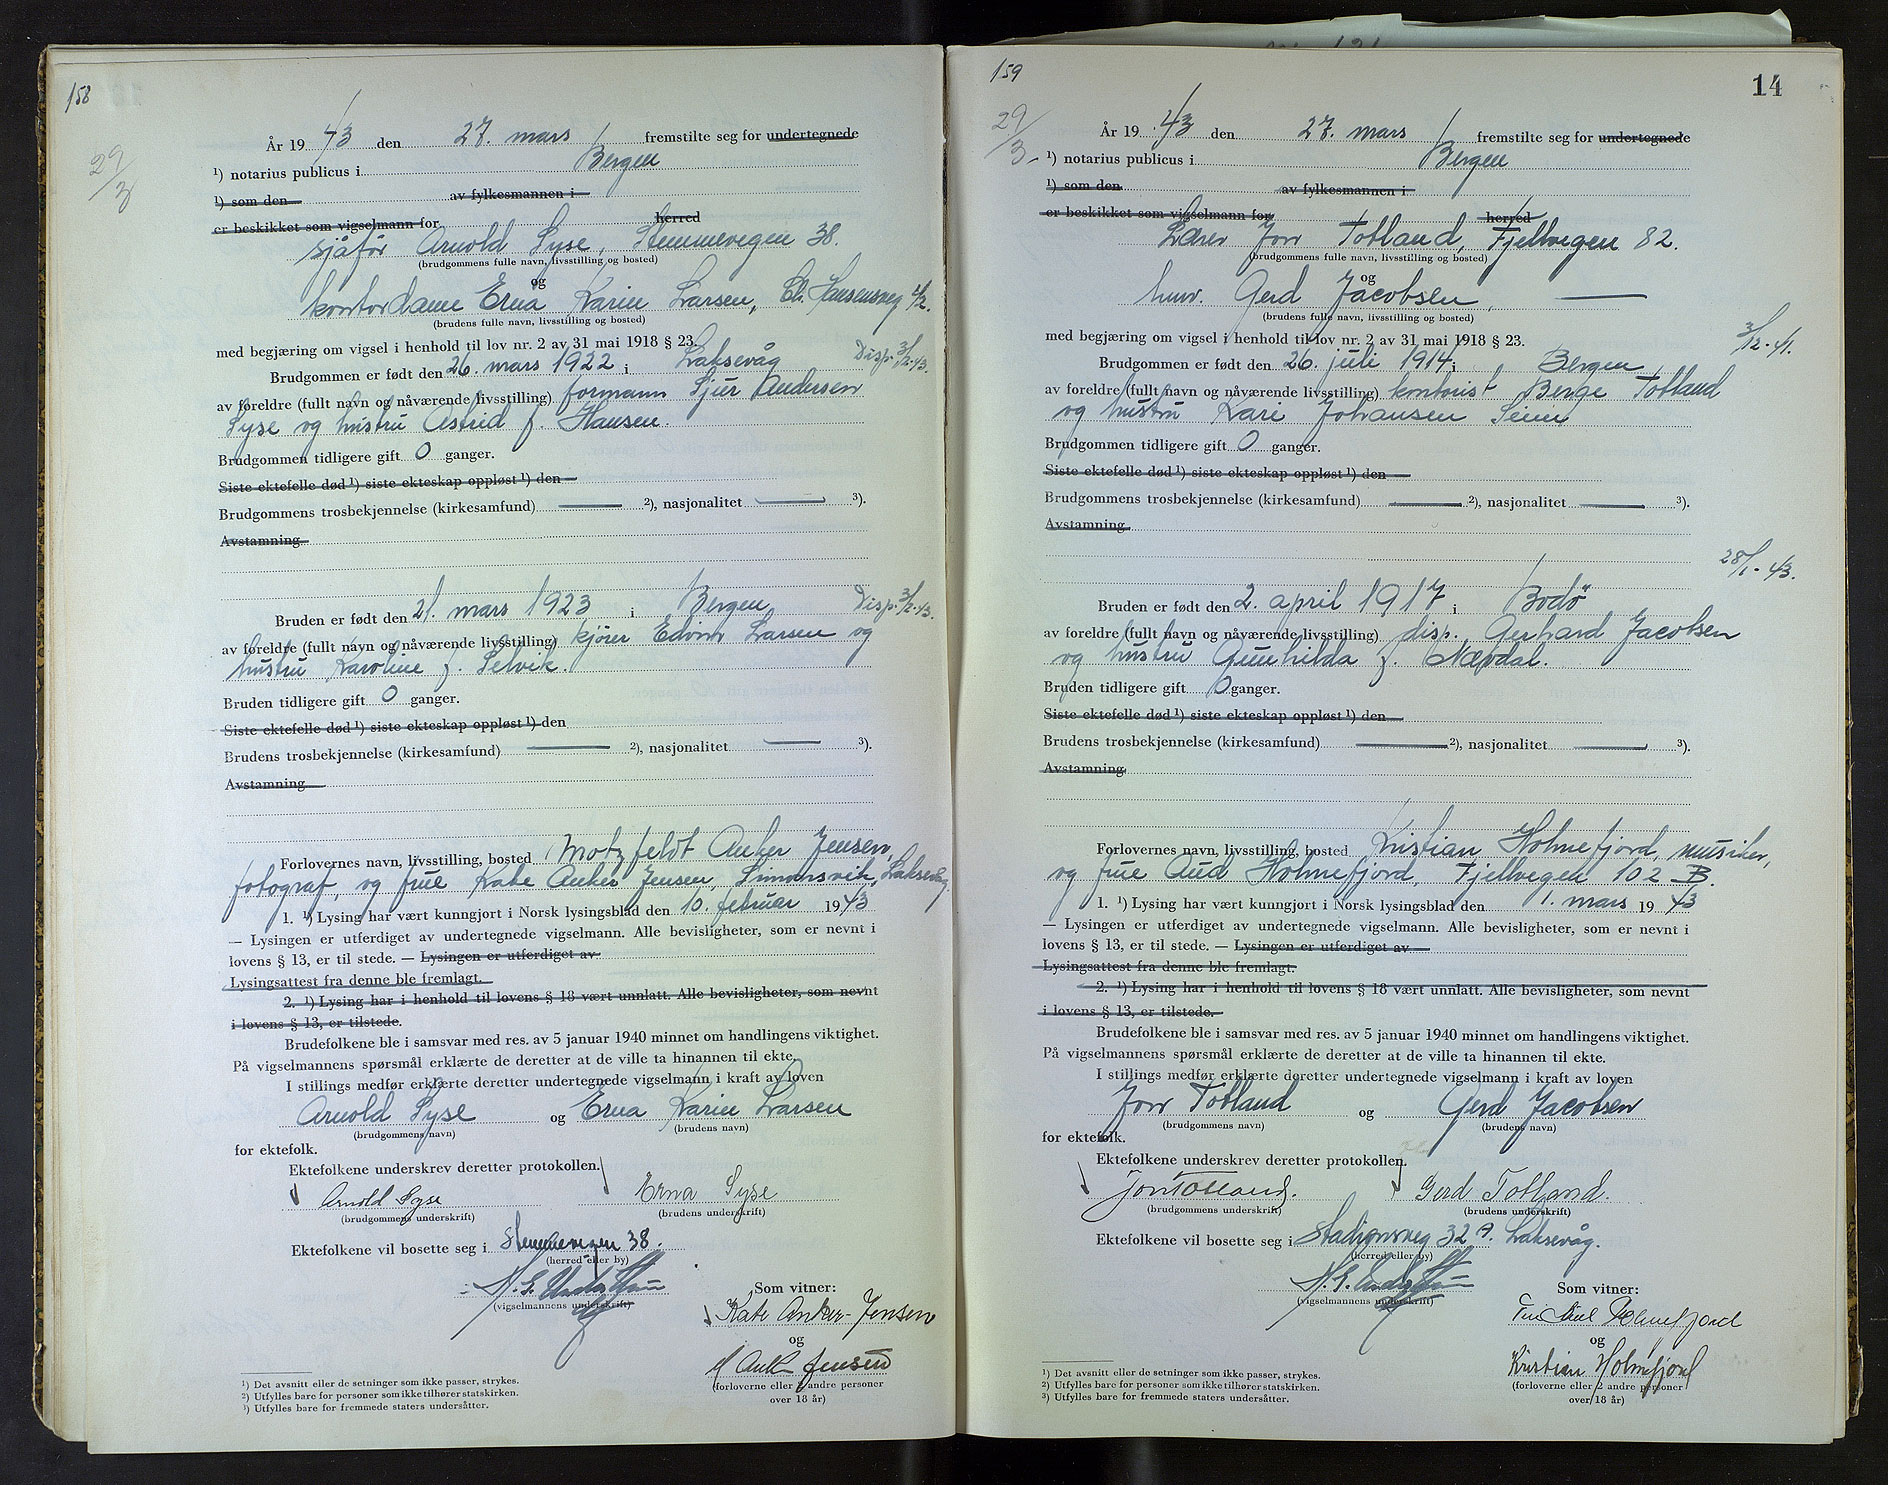 158
29/3
År 1943 den 27. mars fremstilte seg for undertegnede
¹) notarius publicus i Bergen
¹) som den av fylkesmannen i
er beskikket som vigselmann for herred
sjåfør Arnold Syse, Stemmevegen 38.
(brudgommens fulle navn, livsstilling og bosted)
og
kontordame Erna Karin Larsen, Chr. Hansensveg 42.
(brudens fulle navn, livsstilling og bosted)
med begjæring om vigsel i henhold til lov nr. 2 av 31 mai 1918 § 23.
Brudgommen er født den 26. mars 1922 i Laksevåg Disp. 3/2-43.
av foreldre (fullt navn og nåværende livsstilling) formann Sjur Andersen
Syse og hustru Astrid f. Hansen.
Brudgommen tidligere gift 0 ganger.
Siste ektefelle død ¹) siste ekteskap oppløst ¹) den
Brudgommens trosbekjennelse (kirkesamfund) ²), nasjonalitet ³).
Avstamning
Bruden er født den 21. mars 1923 i Bergen Disp. 3/2-43.
av foreldre (fullt navn og nåværende livsstilling) kjører Edvin Larsen og
hustru Karoline f. Selvik.
Bruden tidligere gift 0 ganger.
Siste ektefelle død ¹) siste ekteskap oppløst ¹) den
Brudens trosbekjennelse (kirkesamfund) ²), nasjonalitet ³).
Avstamning
Forlovernes navn, livsstilling, bosted Motzfeldt Anker Jensen,
fotograf, og frue Kate Anker Jensen, Simonsvik, Laksevåg.
1. ¹) Lysing har vært kunngjort i Norsk lysingsblad den 10. februar 1943
— Lysingen er utferdiget av undertegnede vigselmann. Alle bevisligheter, som er nevnt i
lovens § 13, er til stede. — Lysingen er utferdiget av
Lysingsattest fra denne ble fremlagt.
2. ¹) Lysing har i henhold til lovens § 18 vært unnlatt. Alle bevisligheter, som nevnt
i lovens § 13, er tilstede.
Brudefolkene ble i samsvar med res. av 5 januar 1940 minnet om handlingens viktighet.
På vigselmannens spørsmål erklærte de deretter at de ville ta hinannen til ekte.
I stillings medfør erklærte deretter undertegnede vigselmann i kraft av loven
Arnold Syse og Erna Karin Larsen
(brudgommens navn) (brudens navn)
for ektefolk.
Ektefolkene underskrev deretter protokollen.
Arnold Syse Erna Syse
(brudgommens underskrift) (brudens underskrift)
Ektefolkene vil bosette seg i Stemmevegen 38.
(herred eller by)
Som vitner:
(vigselmannens underskrift)
Kate Anker-Jensen
og
M Ank Jensen
(forloverne eller 2 andre personer
over 18 år)
¹) Det avsnitt eller de setninger som ikke passer, strykes.
²) Utfylles bare for personer som ikke tilhører statskirken.
³) Utfylles bare for fremmede staters undersåtter.
159
14
29/3-
År 1943 den 27. mars fremstilte seg for undertegnede
¹) notarius publicus i Bergen
¹) som den av fylkesmannen i
er beskikket som vigselmann for herred
Lærer Jon Totland, Fjellvegen 82.
(brudgommens fulle navn, livsstilling og bosted)
og
husv. Gerd Jacobsen,
(brudens fulle navn, livsstilling og bosted)
med begjæring om vigsel i henhold til lov nr. 2 av 31 mai 1918 § 23.
3/12-41.
Brudgommen er født den 26. juli 1914 i Bergen
av foreldre (fullt navn og nåværende livsstilling) kontorist Berge Totland
og hustru Kari Johansen Seim
Brudgommen tidligere gift 0 ganger.
Siste ektefelle død ¹) siste ekteskap oppløst ¹) den
Brudgommens trosbekjennelse (kirkesamfund) ²), nasjonalitet ³).
Avstamning
28/1-43.
Bruden er født den 2. april 1917 i Bodö
av foreldre (fullt navn og nåværende livsstilling) disp. Gerhard Jacobsen
og hustru Gunhilda f. Nævdal.
Bruden tidligere gift 0 ganger.
Siste ektefelle død ¹) siste ekteskap oppløst ¹) den
Brudens trosbekjennelse (kirkesamfund) ²), nasjonalitet ³).
Avstamning
Forlovernes navn, livsstilling, bosted Kristian Holmefjord, musiker,
og frue Aud Holmefjord, Fjellvegen 102 B.
1. ¹) Lysing har vært kunngjort i Norsk lysingsblad den 1. mars 1943
— Lysingen er utferdiget av undertegnede vigselmann. Alle bevisligheter, som er nevnt i
lovens § 13, er til stede. — Lysingen er utferdiget av
Lysingsattest fra denne ble fremlagt.
2. ¹) Lysing har i henhold til lovens § 18 vært unnlatt. Alle bevisligheter, som nevnt
i lovens § 13, er tilstede.
Brudefolkene ble i samsvar med res. av 5 januar 1940 minnet om handlingens viktighet.
På vigselmannens spørsmål erklærte de deretter at de ville ta hinannen til ekte.
I stillings medfør erklærte deretter undertegnede vigselmann i kraft av loven
Jon Totland og Gerd Jacobsen
(brudgommens navn) (brudens navn)
for ektefolk.
Ektefolkene underskrev deretter protokollen.
Jon Totland. Gerd Totland.
(brudgommens underskrift) (brudens underskrift)
Ektefolkene vil bosette seg i Stadionsveg 32 A. Laksevåg.
(herred eller by)
Som vitner:
(vigselmannens underskrift)
Holmefjord
og
Kristian Holmefjord
(forloverne eller 2 andre personer
over 18 år)
¹) Det avsnitt eller de setninger som ikke passer, strykes.
²) Utfylles bare for personer som ikke tilhører statskirken.
³) Utfylles bare for fremmede staters undersåtter.